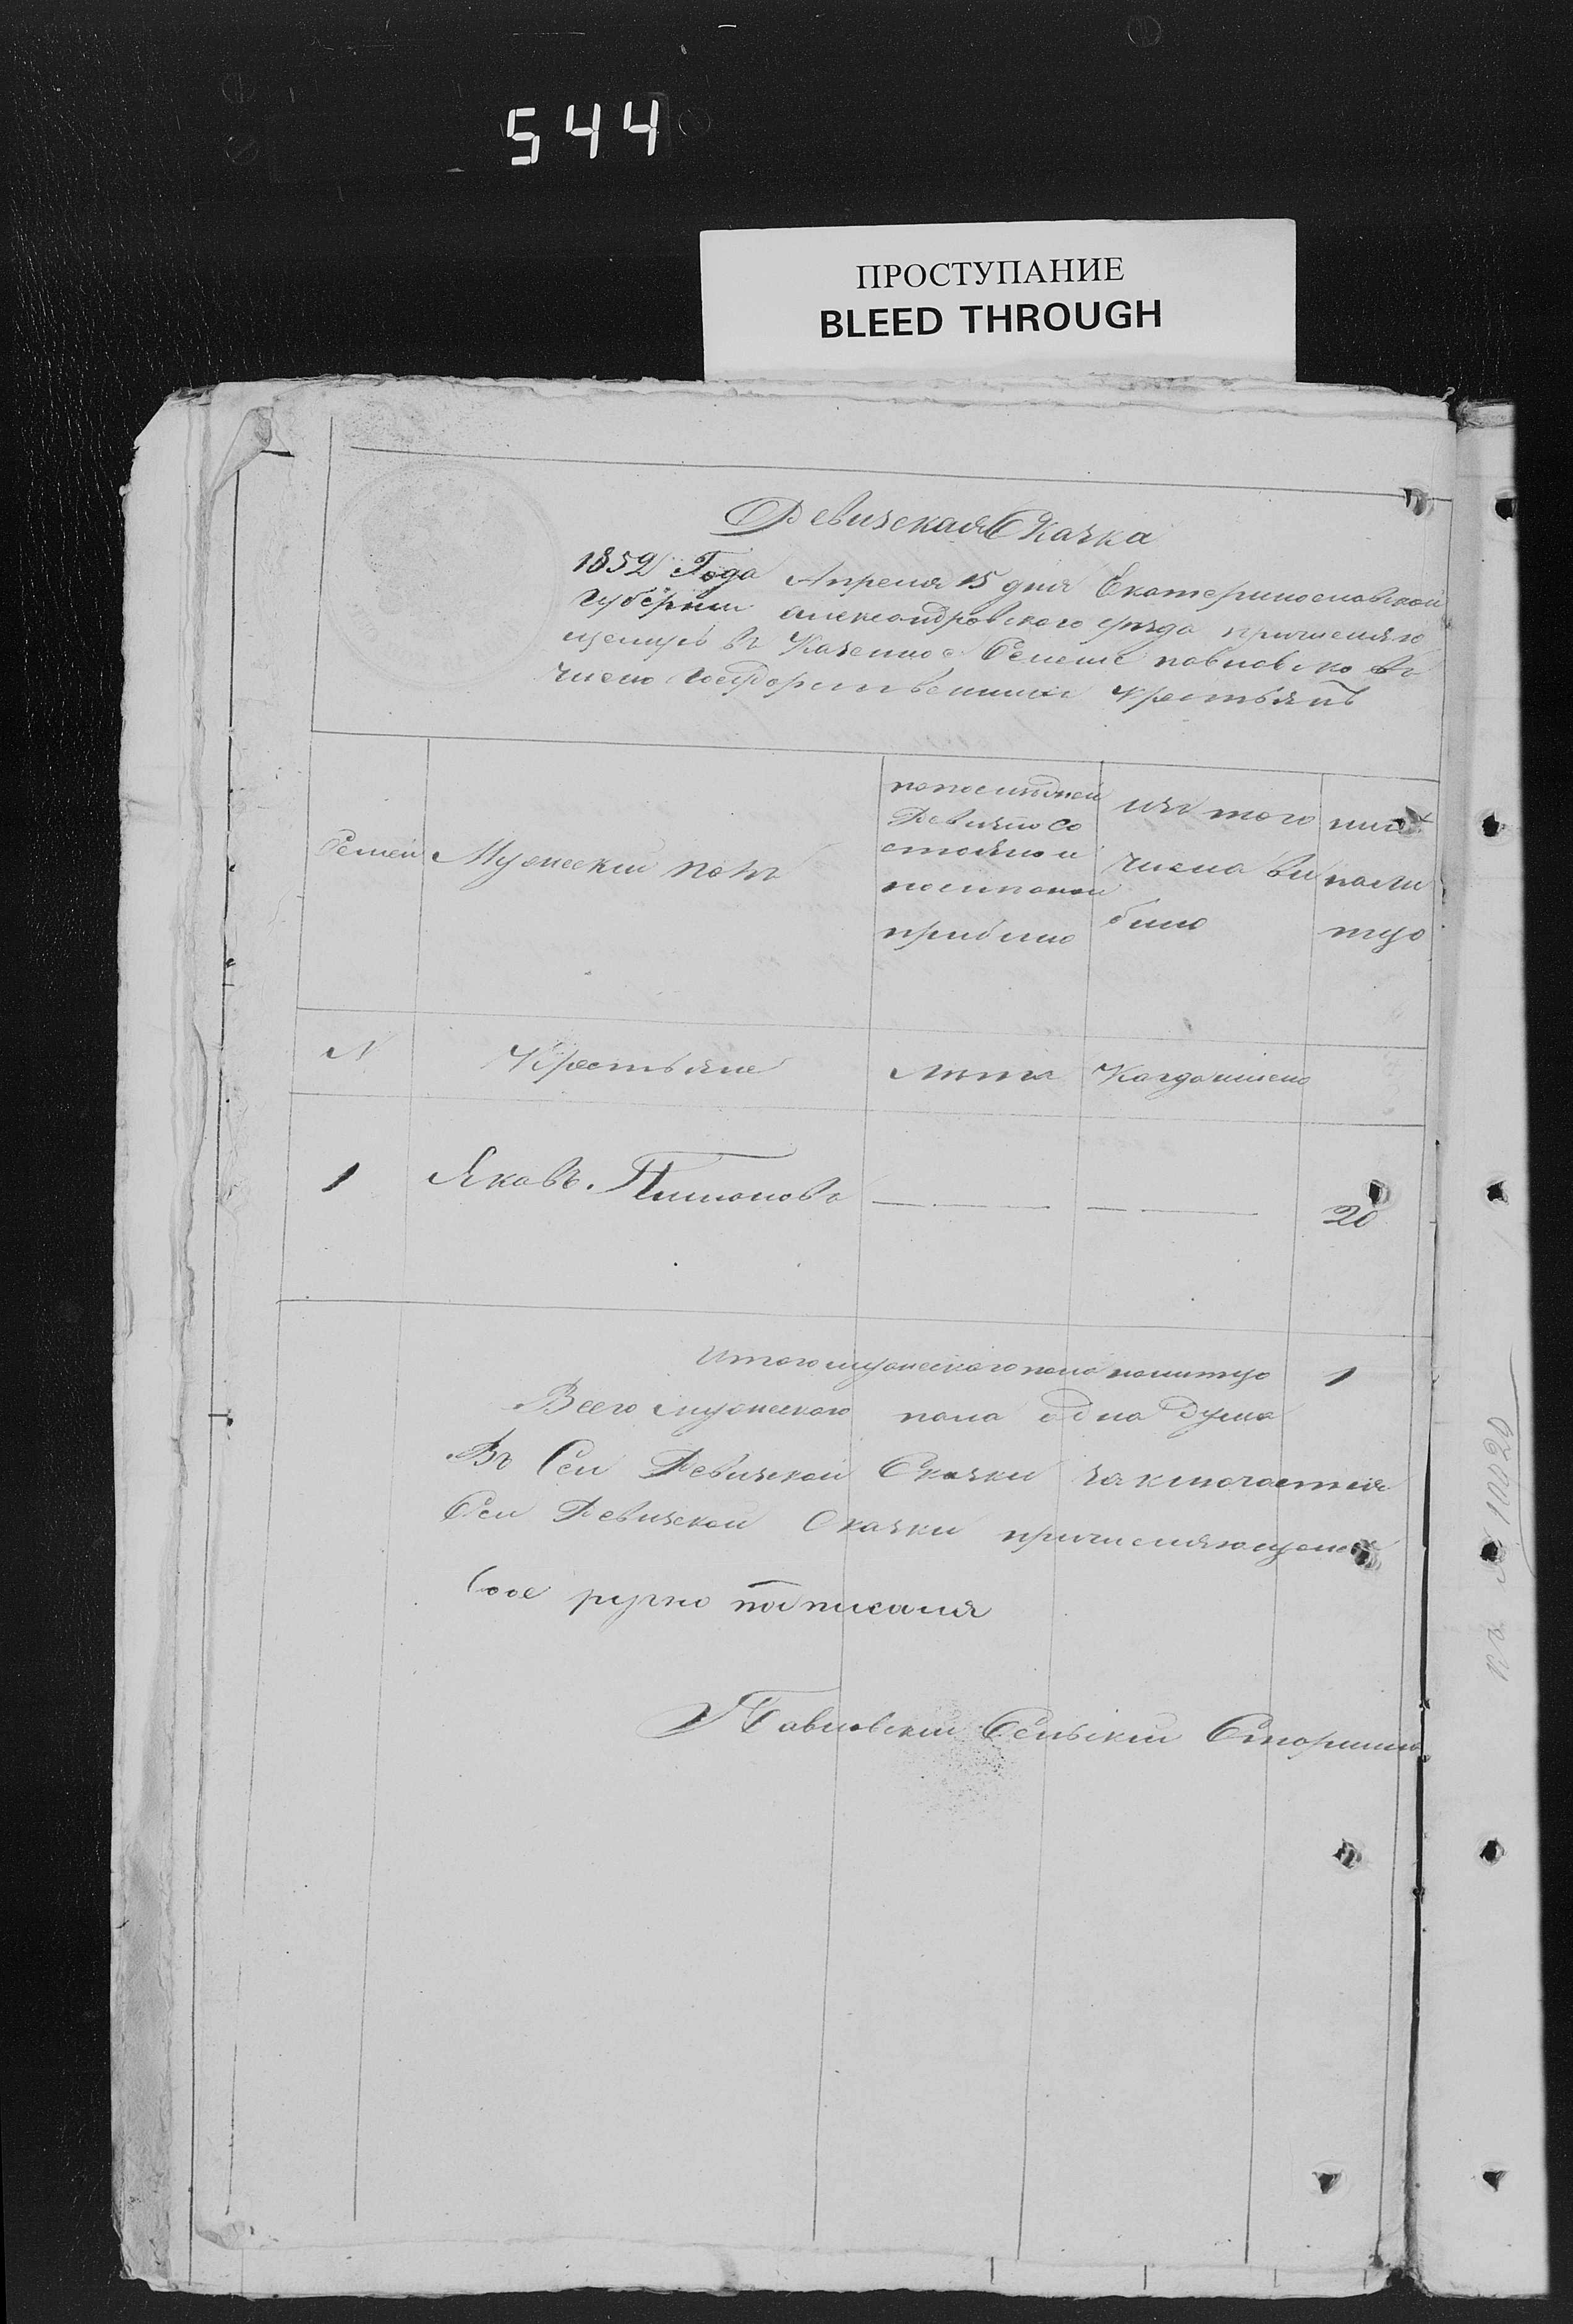 544
ПРОСТУПАНИЕ
BLEED THROUGH
Ревизская Сказка
1852 Года Апреля 15 дня Екатеринославской
Губернии александровского уезда причисляю
щемусь въ Казенное Селение павловко въ
число государственныхъ крестьянъ
Семей
Мужескій полъ
попоследней
Ревизіи со
стояло и
после оной
прибыло
изъ того
числа вы
было
ныне
нали
тцо
N
Крестьяне
Лета
Когда именно
1
Яковъ
20
Итого мужеского пола налитцо 1
Всего мужеского пола одна душа
Въ Сей Ревизской Сказки заключается
Сей Ревизской Сказки причисляющемся
ручно подписался
Павловскій Сельскій Старшина
№ 10020